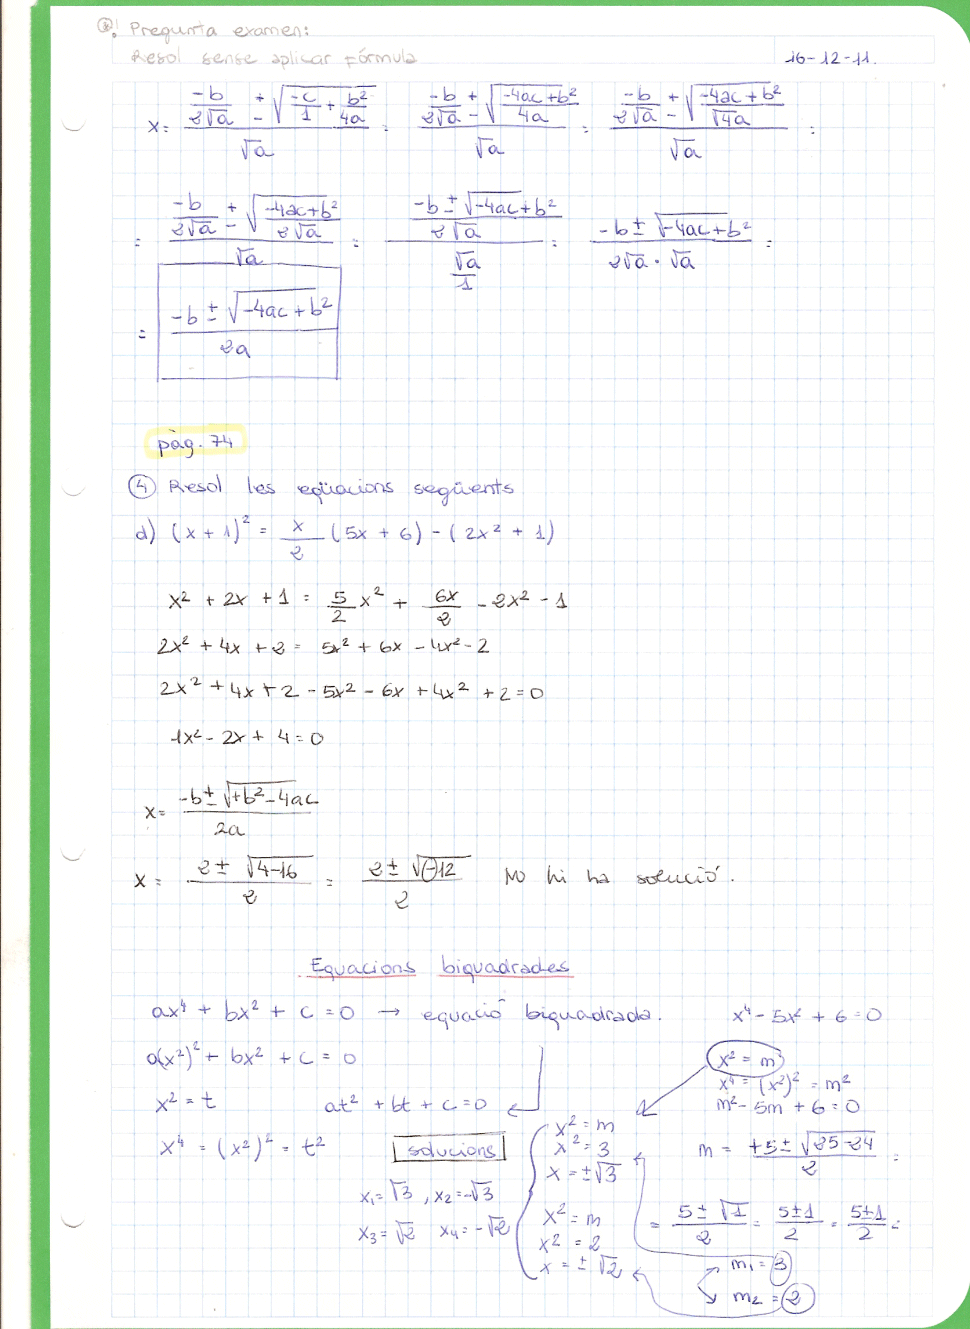 *! Pregunta examen:
Resol sense aplicar fórmula
16-12-11.
x = (-b/(2√a) ± √(-c/1 + b²/4a)) / √a = (-b/(2√a) ± √((-4ac+b²)/4a)) / √a = (-b/(2√a) ± √(-4ac+b²)/√4a) / √a =
= (-b/(2√a) ± √(-4ac+b²)/(2√a)) / √a = ((-b ± √(-4ac+b²))/(2√a)) / (√a/1) = (-b ± √(-4ac+b²)) / (2√a · √a) =
= (-b ± √(-4ac+b²)) / 2a
pàg. 74
4 Resol les equacions següents
d) (x+1)² = x/2 (5x+6) - (2x²+1)
x² + 2x + 1 = 5/2 x² + 6x/2 - 2x² - 1
2x² + 4x + 2 = 5x² + 6x - 4x² - 2
2x² + 4x + 2 - 5x² - 6x + 4x² + 2 = 0
1x² - 2x + 4 = 0
x = (-b ± √(+b² - 4ac)) / 2a
x = (2 ± √(4-16)) / 2 = (2 ± √(-12)) / 2 No hi ha solució.
Equacions biquadrades
ax⁴ + bx² + c = 0 → equació biquadrada.
a(x²)² + bx² + c = 0
x² = t
at² + bt + c = 0
x⁴ = (x²)² = t²
solucions
x₁ = √3 , x₂ = -√3
x₃ = √2 x₄ = -√2
x² = m
x² = 3
x = ±√3
x² = m
x² = 2
x = ±√2
x⁴ - 5x² + 6 = 0
x² = m
x⁴ = (x²)² = m²
m² - 5m + 6 = 0
m = (+5 ± √(25-24)) / 2 =
= (5 ± √1) / 2 = (5±1) / 2 = (5±1) / 2 =
m₁ = 3
m₂ = 2